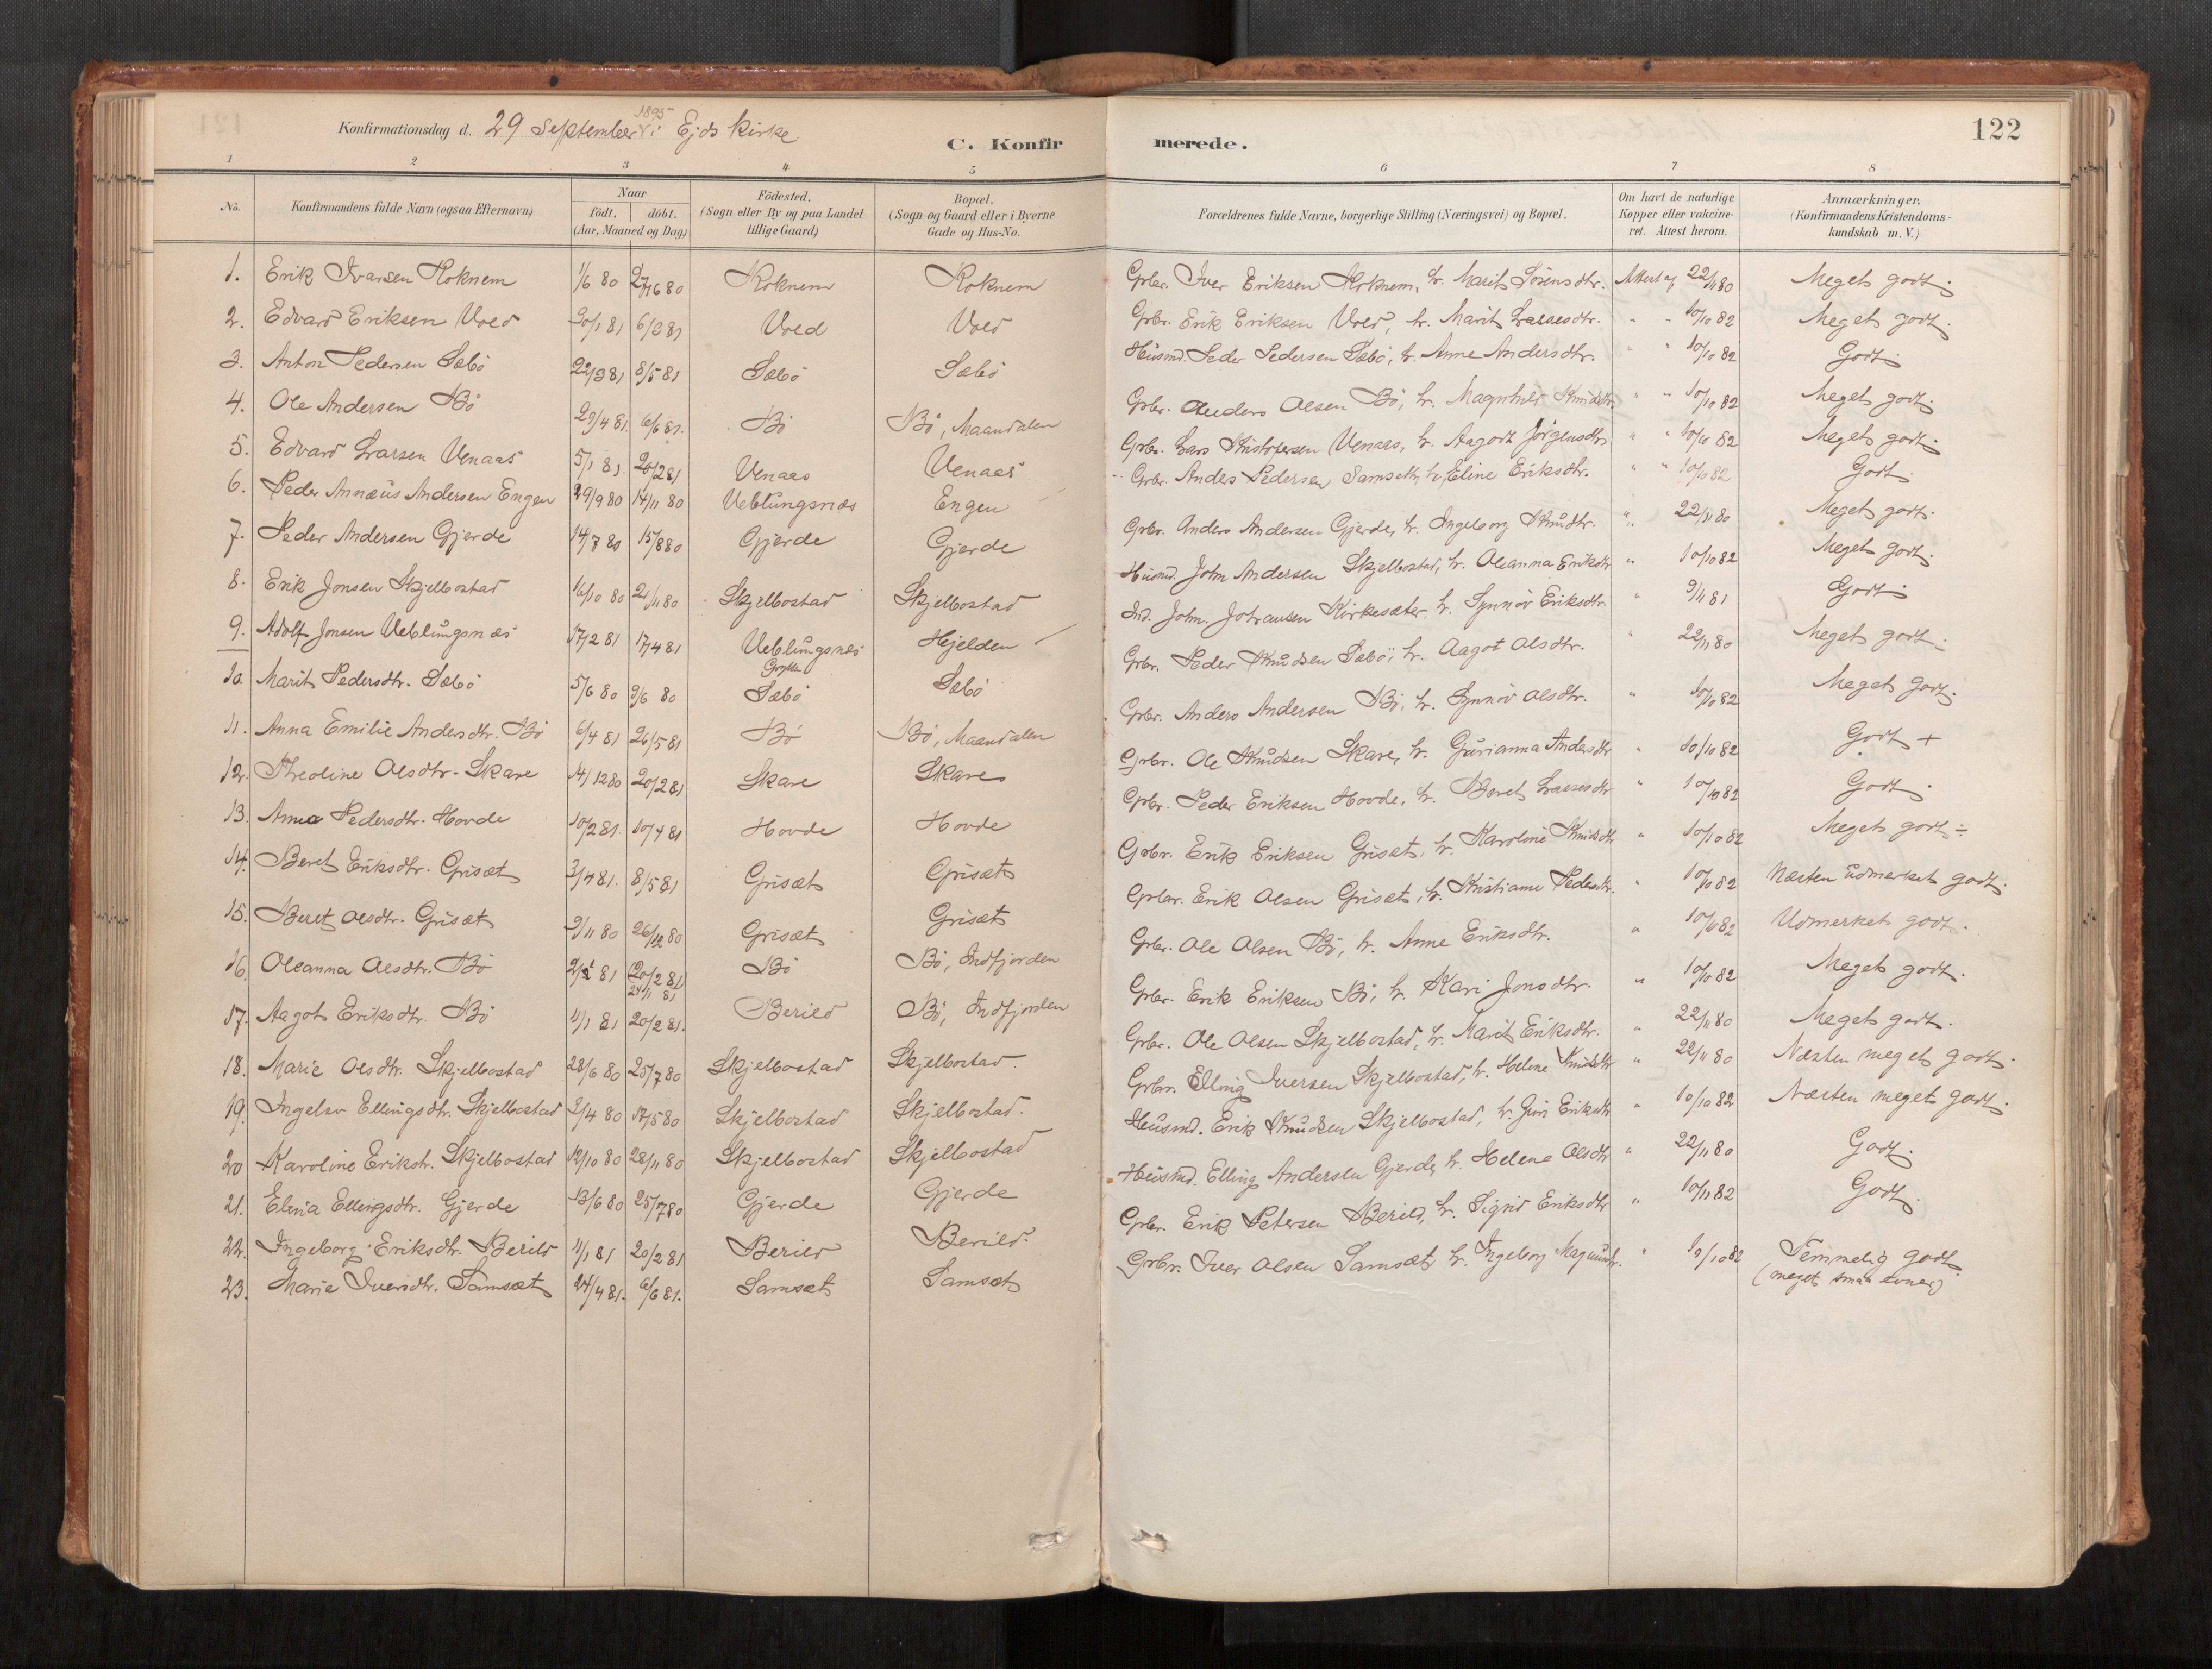 Konfirmationsdag d. 29 September 1895 i Ejds Kirke
C. Konfirmerede.
122
1 2 3 4 5 6 7 8
No.
Konfirmandens fulde Navn (ogsaa Efternavn)
Naar
födt. döbt.
(Aar, Maaned og Dag)
Födested.
(Sogn eller By og paa Landet
tillige Gaard)
Bopæl.
(Sogn og Gaard eller i Byerne
Gade og Hus-No.
Forældrenes fulde Navne, borgerlige Stilling (Næringsvei) og Bopæl.
Om havt de naturlige
Kopper eller vakcine-
ret. Attest herom.
Anmærkninger.
(Konfirmandens Kristendoms-
kundskab m. V.)
1. Erik Ivarsen Koknem 1/6 80 27/6 80 Koknem Koknem Grbr. Iver Eriksen Koknem, h. Marit Sörensdtr. Attest af 22/11 80 Meget godt.
2. Edvard Eriksen Vold 20/1 81 6/3 81 Vold Vold Grbr. Erik Eriksen Vold, h. Marit Lassesdtr. " " 10/10 82 Meget godt.
3. Anton Pedersen Sæbö 22/3 81 8/5 81 Sæbö Sæbö Husmd. Peder Pedersen Sæbö, h. Anne Andersdtr. " " 10/10 82 Godt.
4. Ole Andersen Bö 23/4 81. 6/6 81. Bö Bö, Maandalen Grbr. Anders Olsen Bö, h. Magnhild Knudsdtr. " " 10/10 82 Meget godt.
5. Edvard Larsen Venaas 5/1 81 20/2 81 Venaas Venaas Grbr. Lars Kristofersen Venaas, h. Aagot Jörgensdtr. " " 10/10 82 Meget godt.
6. Peder Annæus Andersen Engen 29/9 80 14/11 80 Veblungsnæs Engen Grbr. Andes Pedersen Samseth, h. Eline Eriksdtr. " " 10/10 82 Godt.
7. Peder Andersen Gjerde 14/7 80 15/8 80 Gjerde Gjerde Grbr. Anders Andersen Gjerde, h. Ingeborg Knudtr. " 22/11 80 Meget godt.
8. Erik Jonsen Skjelbostad 16/10 80 21/11 80 Skjelbostad Skjelbostad Husmd. John Andersen Skjelbostad, h. Oleanna Eriksdtr " 10/10 82 Meget godt.
9. Adolf Jonsen Veblungsnæs 17/2 81 17/4 81 Veblungsnæs Hjelden Ind. John. Johansen Kirkesæter h. Synnöv Eriksdtr. " 9/11 81 Godt.
10. Marit Pedersdtr. Sæbö 5/6 80 9/6 80 Sæbö Sæbö Grbr. Peder Knudsen Sæbö, h. Aagot Olsdtr. " 22/11 80 Meget godt.
11. Anna Emilie Andersdtr. Bö 6/4 81 26/5 81 Bö Bö, Maandalen Grbr. Anders Andersen Bö, h. Synnöv Olsdtr. " 10/10 82 Meget godt.
12. Theoline Olsdtr. Skare 14/12 80 20/2 81 Skare Skare Grbr. Ole Knudsen Skare, h. Gurianna Andersdtr " 10/10 82 Godt +
13. Anna Pedersdtr. Hovde 10/2 81 10/4 81 Hovde Hovde Grbr. Peder Eriksen Hovde, h. Beret Lassesdtr " 10/10 82 Godt.
14. Beret Eriksdtr. Grisæt 3/4 81. 8/5 81 Grisæt Grisæt Grbr. Erik Eriksen Grisæt, h. Karoline Knudsdtr " 10/10 82 Meget godt ÷
15. Beret Olsdtr. Grisæt 9/11 80 26/12 80 Grisæt Grisæt Grbr. Erik Olsen Grisæt, h. Kristianne Pedersdtr. " 10/10 82 Næsten udmerket godt.
16. Oleanna Olsdtr. Bö 2/1 81 (20/2 81) 24/1 81 Bö Bö, Indfjorden Grbr. Ole Olsen Bö, h. Anne Eriksdtr. " 10/10 82 Udmerket godt.
17. Aagot Eriksdtr. Bö 4/1 81 20/2 81. Berild Bö, Indfjorden Grbr. Erik Eriksen Bö, h. Kari Jonsdtr. " 10/10 82 Meget godt.
18. Marie Olsdtr. Skjelbostad 28/6 80 25/7 80 Skjelbostad Skjelbostad. Grbr. Ole Olsen Skjelbostad, h. Marit Eriksdtr. " 22/11 80 Meget godt.
19. Ingelev Ellingsdtr. Skjelbostad 3/4 80 17/5 80 Skjelbostad Skjelbostad. Grbr. Elling Iversen Skjelbostad, h. Helene Knudsdtr " 22/11 80 Næsten meget godt.
20 Karoline Erikstr. Skjelbostad 12/10 80 28/11 80 Skjelbostad Skjelbostad Husmd. Erik Knudsen Skjelbostad, h. Guri Eriksdtr " 10/10 82 Næsten meget godt.
21. Elina Ellingsdtr. Gjerde 13/6 80 25/7 80 Gjerde Gjerde Husmd. Elling Andersen Gjerde, h. Helene Olsdtr " 22/11 80 Godt.
22. Ingeborg Eriksdtr. Berild 4/1 81 20/2 81 Berild Berild. Grbr. Erik Petersen Berild, h. Sigrid Eriksdtr " 10/11 82 Godt.
23. Marie Iversdtr. Samsæt 24/4 81. 6/6 81. Samsæt Samsæt Grbr. Iver Olsen Samsæt h. Ingeborg Magnusdtr. " 10/10 82 Temmelig godt.
(meget smaa evner)